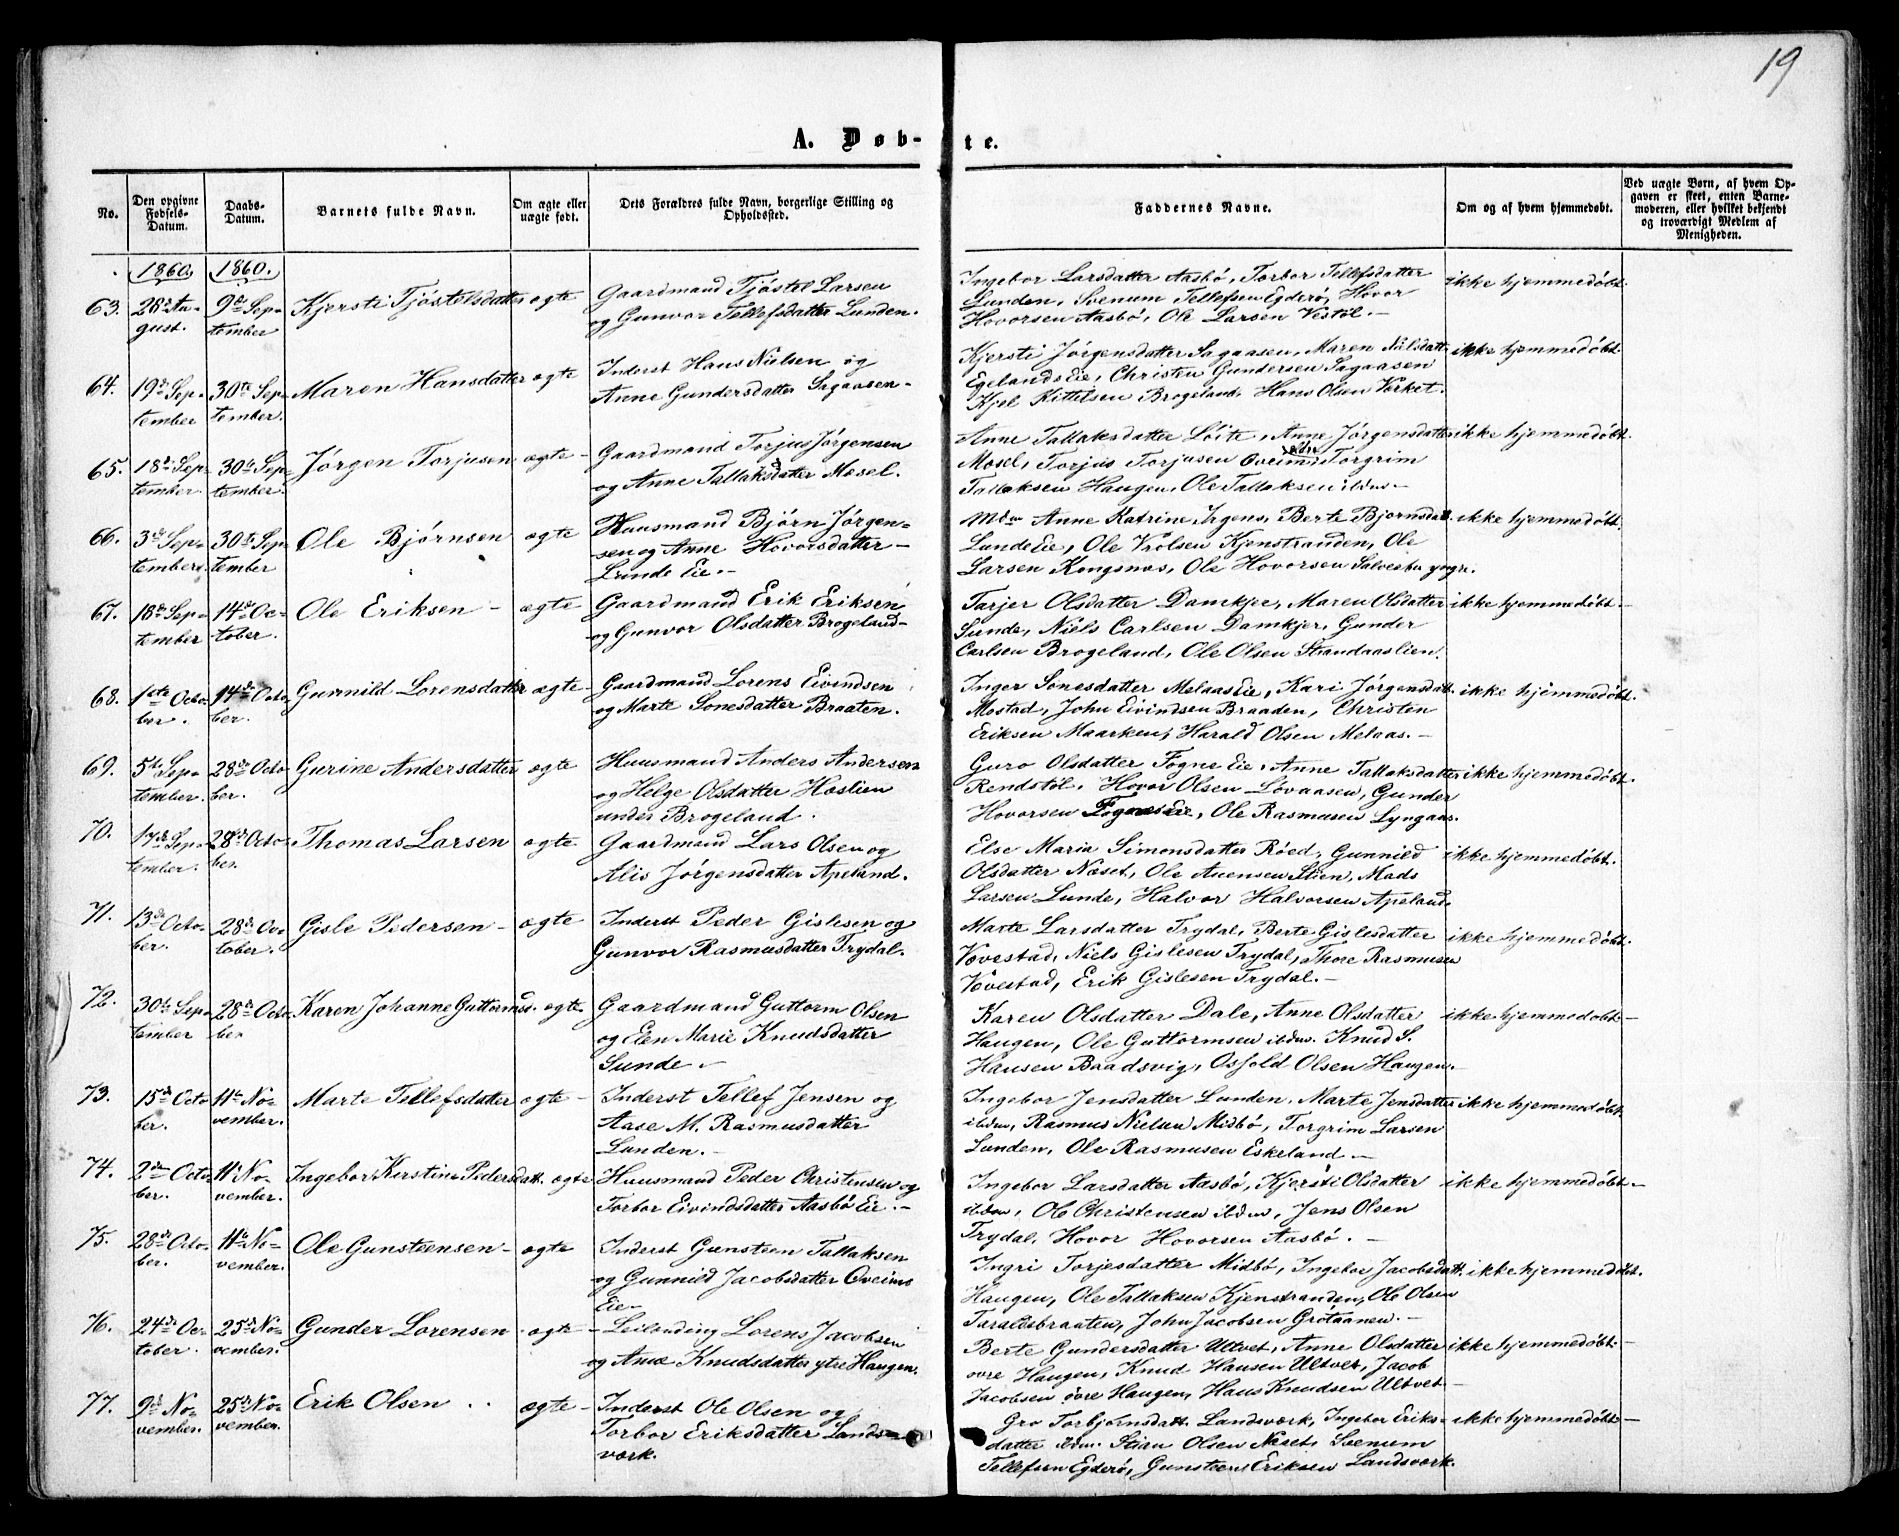 19
A. Døb-
te.
No.
Den opgivne
Fødsels-
Datum.
Daabs-
Datum.
Barnets fulde Navn.
Om ægte eller
uægte født.
Dets Forældres fulde Navn, borgerlige Stilling og
Opholdssted.
Faddernes Navne.
Om og af hvem hjemmedøbt.
Ved uægte Børn, af hvem Op-
gaven er skeet, enten Barne-
moderen, eller hvilket bekjendt
og troværdigt Medlem af
Menigheden.
1860. 1860.
63.
28de Au-
gust.
9de Sep-
tember
Kjersti Tjöstelsdatter
ægte
Gaardmand Tjöstel Larsen
og Gunvor Tellefsdatter Lunden.
Ingebor Larsdatter Aasbö, Torbor Tellefsdatter
Lunden, Svenum Tellefsen Egderö, Hovor
Hovorsen Aasbö, Ole Larsen Vestöl.-
ikke hjemmedøbt.
64.
19de Sep-
tember
30te Sep-
tember.
Maren Hansdatter
ægte
Inderst Hans Nielsen og
Anne Gundersdatter Sagaasen-
Kjersti Jörgensdatter Sagaasen, Maren Nilsdatt.
Egelands Eie, Christen Gundersen Sagaasen
Kjel Kittilsen Brogeland, Hans Olsen Verket.
ikke hjemmedøbt.
65.
18de Sep-
tember.
30te Sep-
tember.
Jörgen Torjusen
ægte-
Gaardmand Torjus Jörgensen
og Anne Tallaksdatter Mosel.
Anne Tallaksdatter Löite, Anne Jörgensdatter
Mosel, Torjus Torjusen Oveimd Torgrim
Tallaksen Haugen, Ole Tallaksen ibdm-
ikke hjemmedøbt.
66.
3de Sep-
tember.
30te Sep-
tember
Ole Bjørnsen
ægte
Huusmand Bjørn Jørgen-
sen og Anne Hovorsdatter-
Lunde Eie.-
Mdm Anne Katrine Irgens, Berte Bjornsdatt.
Lunde Eie, Ole Vrolsen Kjenstranden, Ole
Larsen Kongsnæs, Ole Hovorsen Salvestu
ikke hjemmedøbt.
67.
18de Sep-
tember
14de Oc-
tober.
Ole Eriksen-
ægte
Gaardmand Erik Eriksen
og Gunvor Olsdatter Brogeland-
Tarjer Olsdatter Damkjer, Maren Olsdatter
Sunde, Niels Carlsen Damkjer, Gunder
Carlsen Brogeland, Ole Olsen Strandaaslien.
ikke hjemmedøbt-
68.
1ste Octo-
ber.
14de Octo-
ber.
Gunnild Lorensdatter
ægte-
Gaardmand Lorens Eivindsen
og Marte Sonesdatter Braaten.
Inger Sonesdatter Melaas Eie, Kari Jörgensdatt.
Mostad, John Eivindsen Braaden, Christen
Eriksen Maarken, Harald Olsen Melaas.-
ikke hjemmedøbt.
69.
5te Sep-
tember.
28de Octo-
ber.
Gurine Andersdatter
ægte
Huusmand Anders Andersen
og Helge Olsdatter Hæslien
under Brogeland.
Guro Olsdatter Fogne Eie, Anne Tallaksdatter
Rendstöl, Hovor Olsen Lövaasen, Gunder
Hovorsen Fognes Eie, Ole Rasmusen Lyngaas.
ikke hjemmedøbt.
70.
17de Sep-
tember.
28de Octo-
ber.
Thomas Larsen
ægte
Gaardmand Lars Olsen og
Alis Jørgensdatter Apeland.
Else Maria Simonsdatter Röed, Gunnild
Olsdatter Næset, Ole Auensen Stien, Mads
Larsen Lunde, Halvor Halvorsen Apeland.
ikke hjemmedøbt.
71.
13de Octo-
ber.
28de Oc-
tober.
Gisle Pedersen-
ægte
Inderst Peder Gislesen og
Gunvor Rasmusdatter Trydal.
Marte Larsdatter Trydal, Berte Gislesdatter
Vövestad, Niels Gislesen Trydal, Thore Rasmusen
Vövestad, Erik Gislesen Trydal.-
ikke hjemmedøbt.
72.
30te Sep-
tember
28de Octo-
ber
Karen Johanne Guttormsd.
ægte
Gaardmand Guttorm Olsen
og Elen Marie Knudsdatter
Sunde.-
Karen Olsdatter Dale, Anne Olsdatter
Haugen, Ole Guttormsen ibdm. Knud S.
Hansen Baadsvig, Osfold Olsen Haugen.-
ikke hjemmedøbt-
73.
15de Octo-
ber.
11te No-
vember.
Marte Tellefsdatter
ægte-
Inderst Tellef Jensen og
Aase M. Rasmusdatter
Lunden.-
Ingebor Jensdatter Lunden, Marte Jensdatter
ibdm, Rasmus Nielsen Midbö, Torgrim Larsen
Lunden, Ole Rasmusen Eskeland.-
ikke hjemmedøbt.
74.
2den Octo-
ber.
11te No-
vember.
Ingebor Kerstine Pedersdatt.
ægte
Huusmand Peder Christensen og
Torbor Eivindsdatter Aasbö Eie.-
Ingebor Larsdatter Aasbö, Kjersti Olsdatter
ibdm, Ole Christensen ibdm, Jens Olsen
Trydal, Hovor Hovorsen Aasbö.-
ikke hjemmedøbt-
75.
28de Octo-
ber.
11te No-
vember.
Ole Gunsteensen-
ægte
Inderst Gunsteen Tallaksen
og Gunnild Jacobsdatter Oveims
Eie-
Ingri Torjesdatter Midbö, Ingebor Jacobsdatt.
Haugen, Ole Tallaksen Kjenstranden, Ole Olsen
Taraldsbraaten, John Jacobsen Grötaanen.-
ikke hjemmedøbt.
76.
24de Oc-
tober.
25de No-
vember.
Gunder Lorensen
ægte-
Leilending Lorens Jacobsen
og Anne Knudsdatter ytre Haugen.
Berte Gundersdatter Ultvet, Anne Olsdatter
övre Haugen, Knud Hansen Ultvet, Jacob
Jacobsen övre Haugen, Hans Knudsen Ultvet-
ikke hjemmedøbt-
77.
9de No-
vember.
25de No-
vember.
Erik Olsen
ægte-
Inderst Ole Olsen og
Torbor Eriksdatter Lands-
værk.
Gro Torbjörnsdatt. Landsværk, Ingebor Eriks-
datter ibdm. Stian Olsen Næset, Svenum
Tellefsen Egderö, Gunsteen Eriksen Landsværk.
ikke hjemmedøbt-